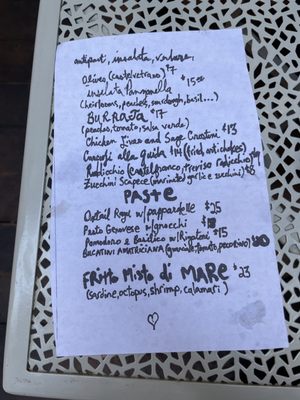 antipasti, insalata, verdure,
Olives (castelvetrano) $7
insalata Panzanella $15
(heirlooms, peaches, sourdough, basil...)
BURRATA $17
(peaches, tomato, salsa verde)
Chicken Liver and Sage Crostini $13
Carciofi alla Guida $14 (fried artichokes)
Radicchio (castelfranco, treviso radicchio)
Zucchini Scapece (marinated garlic e zucchini) $8
PASTE
Oxtail Ragu w/ pappardelle $25
Pesto Genovese w/ gnocchi
Pomodoro e Basilico w/ Rigatoni $15
BUCATINI AMATRICIANA (guanciale, tomato, pecorino)
FRitto Misto di MARE $23
(sardine, octopus, shrimp, calamari)